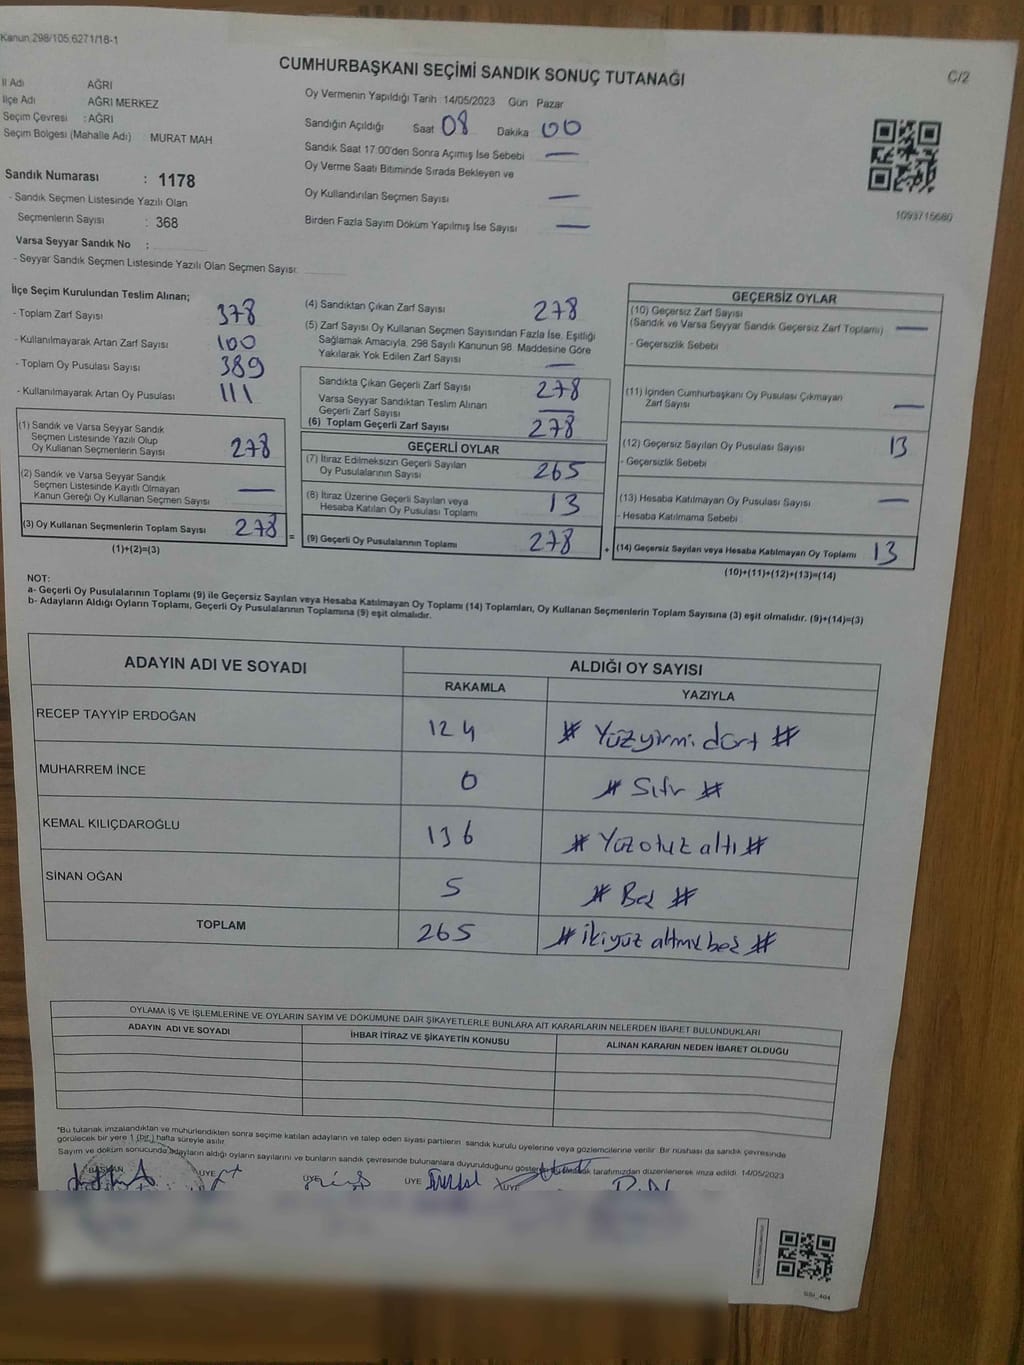 Kanun:298/105,6271/18-1
CUMHURBAŞKANI SEÇİMİ SANDIK SONUÇ TUTANAĞI
C/2
İl Adı AĞRI
İlçe Adı AĞRI MERKEZ
Seçim Çevresi : AĞRI
Seçim Bölgesi (Mahalle Adı) : MURAT MAH
Oy Vermenin Yapıldığı Tarih : 14/05/2023 Gün Pazar
Sandığın Açıldığı Saat 08 Dakika 00
Sandık Saat 17:00'den Sonra Açımış İse Sebebi —
Oy Verme Saati Bitiminde Sırada Bekleyen ve
Oy Kullandırılan Seçmen Sayısı —
Birden Fazla Sayım Döküm Yapılmış İse Sayısı —
1093715660
Sandık Numarası : 1178
- Sandık Seçmen Listesinde Yazılı Olan
Seçmenlerin Sayısı : 368
Varsa Seyyar Sandık No :
- Seyyar Sandık Seçmen Listesinde Yazılı Olan Seçmen Sayısı:
İlçe Seçim Kurulundan Teslim Alınan;
- Toplam Zarf Sayısı 378
- Kullanılmayarak Artan Zarf Sayısı 100
- Toplam Oy Pusulası Sayısı 389
- Kullanılmayarak Artan Oy Pusulası 111
(1) Sandık ve Varsa Seyyar Sandık
Seçmen Listesinde Yazılı Olup
Oy Kullanan Seçmenlerin Sayısı 278
(2) Sandık ve Varsa Seyyar Sandık
Seçmen Listesinde Kayıtlı Olmayan
Kanun Gereği Oy Kullanan Seçmen Sayısı —
(3) Oy Kullanan Seçmenlerin Toplam Sayısı 278 =
(1)+(2)=(3)
(4) Sandıktan Çıkan Zarf Sayısı 278
(5) Zarf Sayısı Oy Kullanan Seçmen Sayısından Fazla İse, Eşitliği
Sağlamak Amacıyla, 298 Sayılı Kanunun 98. Maddesine Göre
Yakılarak Yok Edilen Zarf Sayısı —
Sandıkta Çıkan Geçerli Zarf Sayısı 278
Varsa Seyyar Sandıktan Teslim Alınan
Geçerli Zarf Sayısı —
(6) Toplam Geçerli Zarf Sayısı 278
GEÇERLİ OYLAR
(7) İtiraz Edilmeksizin Geçerli Sayılan
Oy Pusulalarının Sayısı 265
(8) İtiraz Üzerine Geçerli Sayılan veya
Hesaba Katılan Oy Pusulası Toplamı 13
(9) Geçerli Oy Pusulalarının Toplamı 278 +
GEÇERSİZ OYLAR
(10) Geçersiz Zarf Sayısı
(Sandık ve Varsa Seyyar Sandık Geçersiz Zarf Toplamı) —
- Geçersizlik Sebebi
(11) İçinden Cumhurbaşkanı Oy Pusulası Çıkmayan
Zarf Sayısı —
(12) Geçersiz Sayılan Oy Pusulası Sayısı 13
- Geçersizlik Sebebi
(13) Hesaba Katılmayan Oy Pusulası Sayısı —
- Hesaba Katılmama Sebebi
(14) Geçersiz Sayılan veya Hesaba Katılmayan Oy Toplamı 13
(10)+(11)+(12)+(13)=(14)
NOT:
a- Geçerli Oy Pusulalarının Toplamı (9) ile Geçersiz Sayılan veya Hesaba Katılmayan Oy Toplamı (14) Toplamları, Oy Kullanan Seçmenlerin Toplam Sayısına (3) eşit olmalıdır. (9)+(14)=(3)
b- Adayların Aldığı Oyların Toplamı, Geçerli Oy Pusulalarının Toplamına (9) eşit olmalıdır.
ADAYIN ADI VE SOYADI ALDIĞI OY SAYISI
RAKAMLA YAZIYLA
RECEP TAYYİP ERDOĞAN 124 # Yüzyirmi dört #
MUHARREM İNCE 0 # Sıfır #
KEMAL KILIÇDAROĞLU 136 # Yüzotuz altı #
SİNAN OĞAN 5 # Beş #
TOPLAM 265 # ikiyüz altmış beş #
OYLAMA İŞ VE İŞLEMLERİNE VE OYLARIN SAYIM VE DÖKÜMÜNE DAİR ŞİKAYETLERLE BUNLARA AİT KARARLARIN NELERDEN İBARET BULUNDUKLARI
ADAYIN ADI VE SOYADI İHBAR İTİRAZ VE ŞİKAYETİN KONUSU ALINAN KARARIN NEDEN İBARET OLDUĞU
*Bu tutanak imzalandıktan ve mühürlendikten sonra seçime katılan adayların ve talep eden siyasi partilerin sandık kurulu üyelerine veya gözlemcilerine verilir. Bir nüshası da sandık çevresinde
görülecek bir yere 1 (bir) hafta süreyle asılır.
Sayım ve döküm sonucunda adayların aldığı oyların sayılarını ve bunların sandık çevresinde bulunanlara duyurulduğunu gösteren tarafımızdan düzenlenerek imza edildi. 14/05/2023
BAŞKAN ÜYE ÜYE ÜYE ÜYE